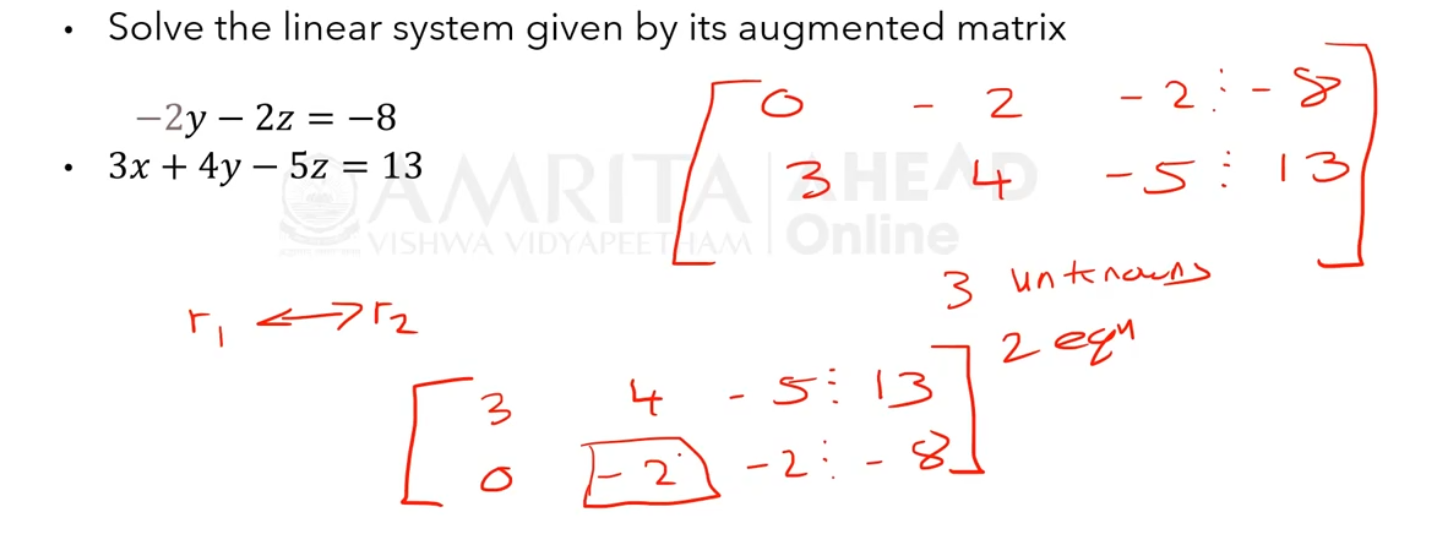 • Solve the linear system given by its augmented matrix
−2y − 2z = −8
• 3x + 4y − 5z = 13
0 - 2 - 2 ⋮ - 8
3 4 - 5 ⋮ 13
AMRITA AHEAD
VISHWA VIDYAPEETHAM Online
3 unknowns
2 eqn
r₁ ⟷ r₂
3 4 - 5 ⋮ 13
0 - 2 - 2 ⋮ - 8